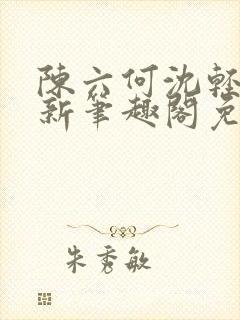 陳六何沈輕
新筆趣閣免
朱秀敏